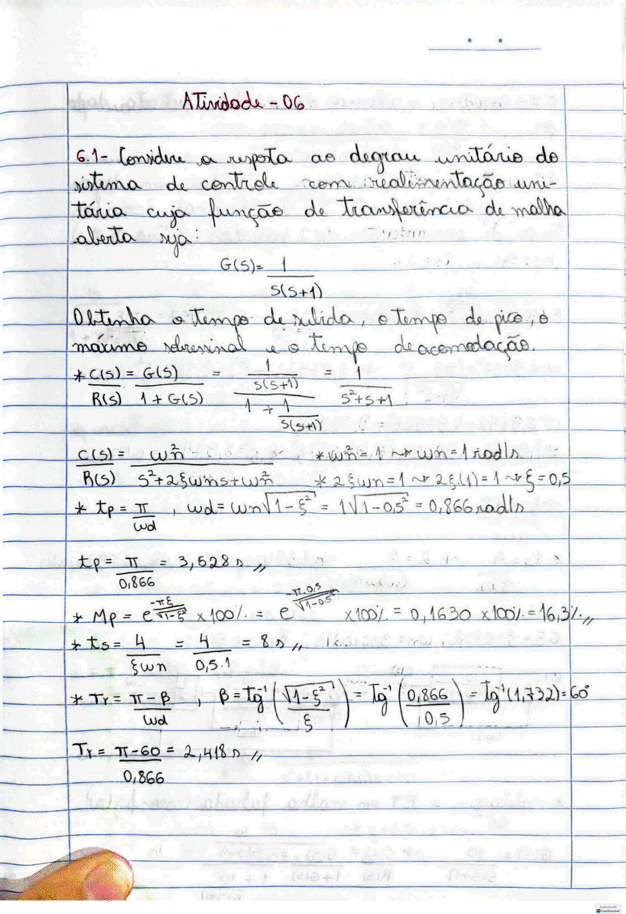 Atividade - 06
6.1- Considere a resposta ao degrau unitário do
sistema de controle com realimentação uni-
tária cuja função de transferência de malha
aberta seja:
G(s)= 1/(s(s+1))
Obtenha o tempo de subida, o tempo de pico, o
máximo sobressinal e o tempo de acomodação.
* C(s)/R(s) = G(s)/(1+G(s)) = (1/(s(s+1)))/(1+1/(s(s+1))) = 1/(s²+s+1)
C(s)/R(s) = ωn²/(s²+2ξωns+ωn²) * ωn²=1 ⇝ ωn=1 rad/s
* 2ξωn=1 ⇝ 2ξ(1)=1 ⇝ ξ=0,5
* tp= π/ωd , ωd=ωn√(1-ξ²) = 1√(1-0,5²) = 0,866 rad/s
tp= π/0,866 = 3,628 s //
* Mp= e^(-πξ/√(1-ξ²)) x100% = e^(-π.0,5/√(1-0,5²)) x100% = 0,1630 x100% = 16,3% //
* ts= 4/(ξωn) = 4/(0,5.1) = 8 s //
* Tr= (π-β)/ωd , β= tg⁻¹(√(1-ξ²)/ξ) = tg⁻¹(0,866/0,5) = tg⁻¹(1,732)=60°
Tr= (π-60)/0,866 = 2,418 s //